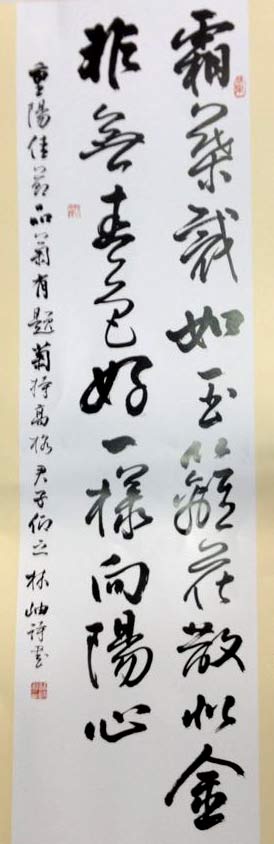 霜葉裁如玉籬花散似金
非無春色好一樣向陽心
重陽佳節品菊有題菊持高格君子仰之林岫詩書